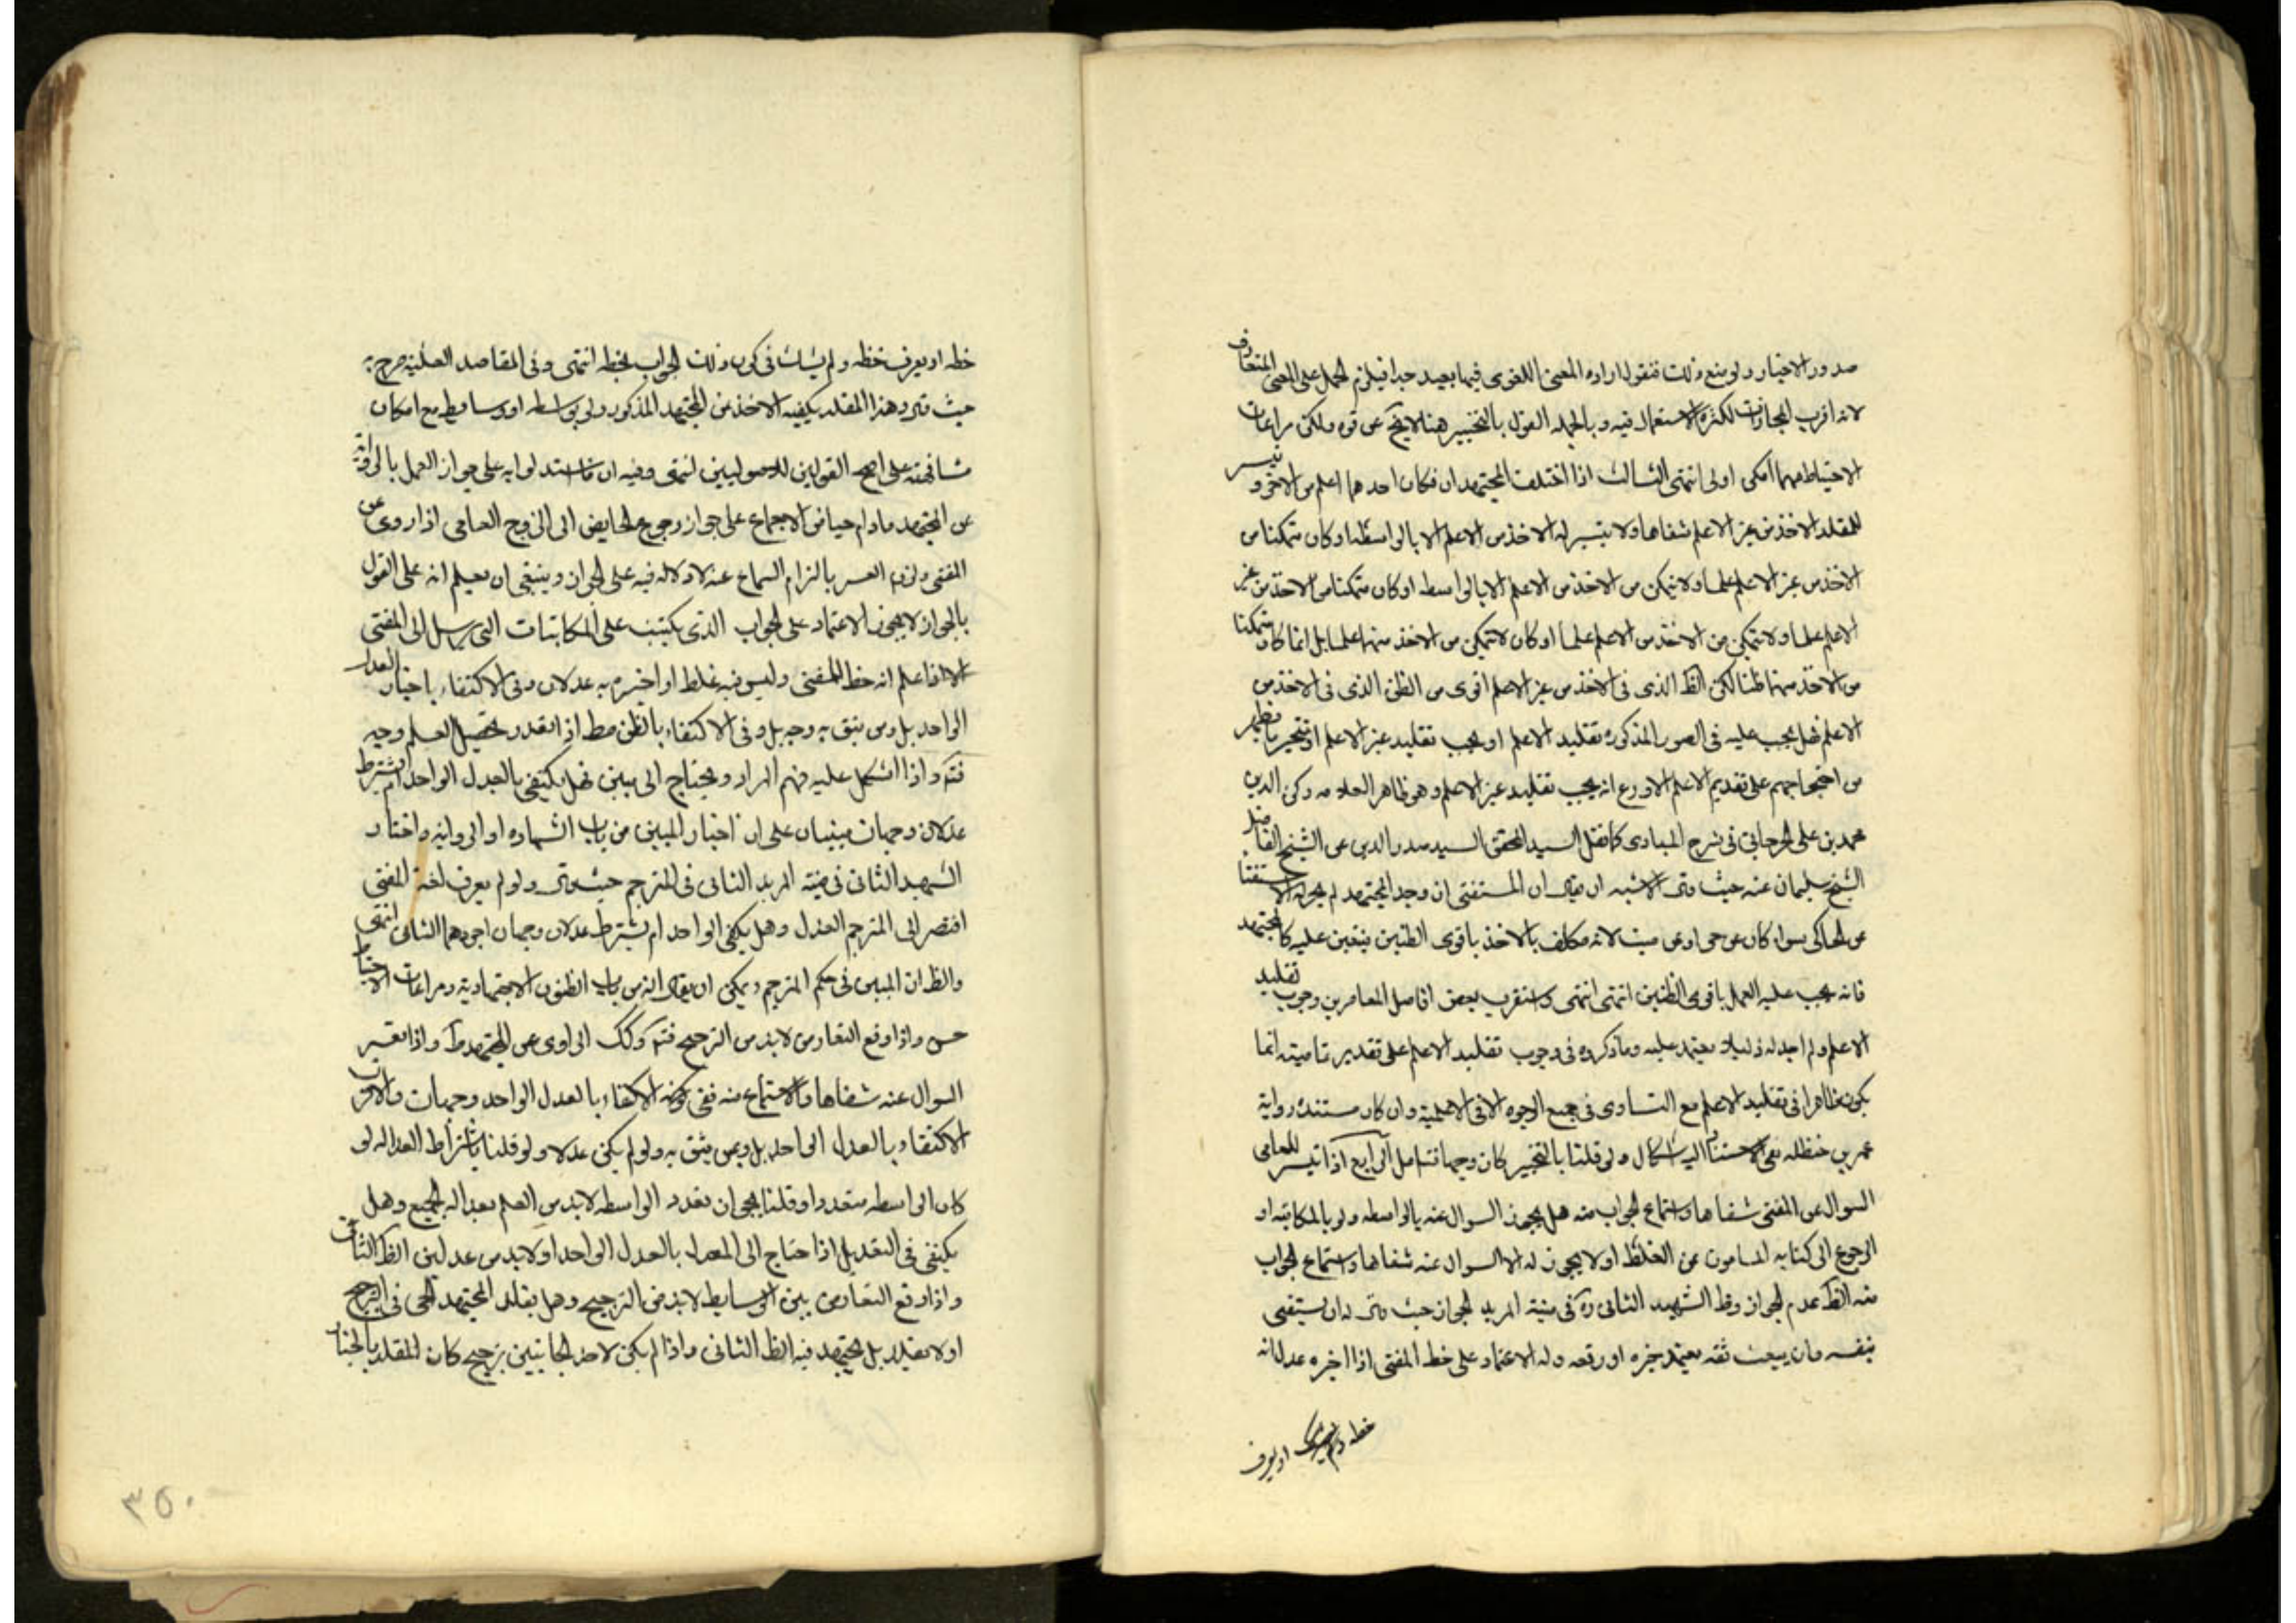 صدور الاخبار ولو منع ذلك فنقول اراده المعنى اللغوى فيها بعيد جدا فيلزم الحمل على المعنى المتعارف
لانه اقرب المجازات لكثرة الاستعمال فيه وبالجمله القول بالتخيير هنا لا يخ عن قوه ولكن مراعات
الاحتياط مهما امكن اولى انتهى الثالث اذا اختلف المجتهدان فكان احدهما اعلم من الاخر و تيسر
للمقلد الاخذ من غير الاعلم شفاها ولا يتيسر له الاخذ من الاعلم الا بالواسطه او كان متمكنا من
الاخذ من غير الاعلم علما ولا يتمكن من الاخذ من الاعلم الا بالواسطه او كان متمكنا من الاخذ من غير
الاعلم علما ولا يتمكن من الاخذ من الاعلم علما او كان لا يتمكن من الاخذ منهما علما بل انما كان متمكنا
من الاخذ منهما ظنا لكن الظن الذى فى الاخذ من غير الاعلم اقوى من الظن الذى فى الاخذ من
الاعلم فهل يجب عليه فى الصور المذكوره تقليد الاعلم او يجب تقليد غير الاعلم او يتخير يظهر
من احتجاجهم على تقديم الاعلم الاورع انه يجب تقليد غير الاعلم وهو ظاهر العلامه ركن الدين
محمد بن على الجرجانى فى شرح المبادى كما نقل السيد المحقق السيد صدر الدين عن الشيخ الفاضل
الشيخ سليمان عنه حيث قال الاشبه ان يقال ان المستفتى ان وجد المجتهد لم يجز له الاستفتا
عن الحاكى سواء كان عن حى او عن ميت لانه مكلف بالاخذ باقوى الظنين فيتعين عليه كالمجتهد
فانه يجب عليه العمل باقوى الظنين انتهى انتهى واستقرب بعض افاضل المعاصرين وجوب تقليد
الاعلم ولم اجد له دليلا يعتمد عليه وما ذكروه فى وجوب تقليد الاعلم على تقدير تماميته انما
يكون ظاهرا فى تقليد الاعلم مع التساوى فى جميع الوجوه الا فى الاعلمية وان كان مستنده رواية
عمر بن حنظله ففى الاستناد اليه اشكال ولو قلنا بالتخيير كان وجها فتامل الرابع اذا تيسر للعامى
السوال عن المفتى شفاها واستماع الجواب منه هل يجوز السوال عنه بالواسطه ولو بالمكاتبه او
الرجوع الى كتابه المامون من الغلط او لا يجوز له الا السوال عنه شفاها واستماع الجواب
منه الظ عدم الجواز وظ الشهيد الثانى ره فى منية المريد الجواز حيث قال له ان يستفتى
بنفسه وان يبعث ثقه يعتمد خبره او رقعه وله الاعتماد على خط المفتى اذا اخبره عدل انه
خطه او يعرف
خطه او يعرف خطه ولم يشك فى كون ذلك الجواب بخطه انتهى وفى المقاصد العليه صرح به
حيث قال وهذا المقلد يكفيه الاخذ من المجتهد المذكور ولو بواسطه او وسايط مع امكان
مشافهته على اصح القولين للاصوليين انتهى وفيه ان ما استدلوا به على جواز العمل بالرواية
عن المجتهد مادام حيا من الاجماع على جواز رجوع الحايض الى الزوج العامى اذا روى عن
المفتى ولزوم العسر بالزام السماع عنه لا دلاله فيه على الجواز وينبغى ان يعلم انه على القول
بالجواز لا يجوز الاعتماد على الجواب الذى يكتب على المكاتبات التى يرسل الى المفتى
الا اذا علم انه خط المفتى وليس فيه غلط او اخبره به عدلان وفى الاكتفاء باخبار العدل
الواحد بل ومن يثق به وجه بل وفى الاكتفاء بالظن مط اذا تعذر تحصيل العلم وجه
فتم واذا اشكل عليه فهم المراد ويحتاج الى مبين فهل يكتفى بالعدل الواحد ام يشترط
عدلان وجهان مبنيان على ان اخبار المبين من باب الشهاده او الروايه واختار
الشهيد الثانى فى منيه المريد الثانى فى المترجم حيث قال ولو لم يعرف لغة المفتى
افتقر الى المترجم العدل وهل يكفى الواحد ام يشترط عدلان وجهان اجودهما الثانى انتهى
والظ ان المبين فى حكم المترجم ويمكن ان يقال انه من باب الظنون الاجتهادية ومراعات الاحتياط
حسن واذا وقع التعارض لابد من الترجيح فتم وكك الراوى عن المجتهد واذا تعسر
السوال عنه شفاها والاستماع منه ففى كونه الاكتفاء بالعدل الواحد وجهان والاقرب
الاكتفاء بالعدل الواحد بل وبمن يثق به ولو لم يكن عدلا ولو قلنا باشتراط العداله لو
كان الواسطه متعددا وقلنا بجواز تعدد الواسطه لابد من العلم بعداله الجميع وهل
يكتفى فى التعديل اذا احتاج الى المعدل بالعدل الواحد او لابد من عدلين الظ الثانى
واذا وقع التعارض بين الوسايط لابد من الترجيح وهل يقلد المجتهد الحى فى الترجيح
او لا يقلد بل يجتهد فيه الظ الثانى واذا لم يكن لاحد الجانبين ترجيح كان المقلد بالخيار
٣٥٠